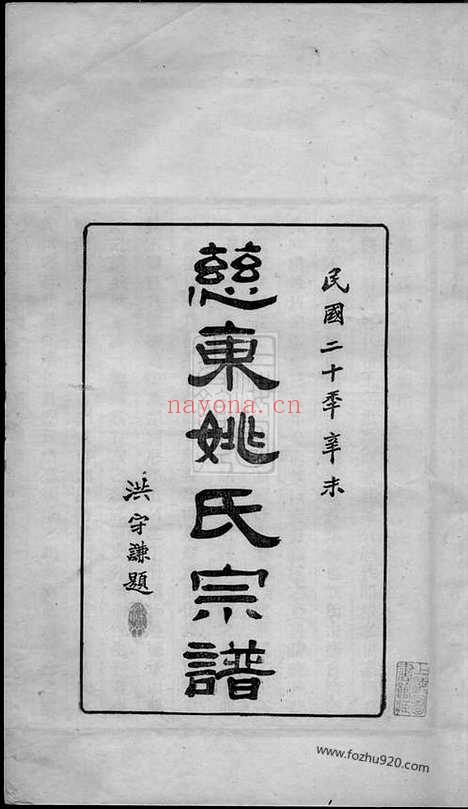 民國二十季辛未
慈東姚氏宗譜
洪守謙題
nayona.cn
www.fozhu920.com